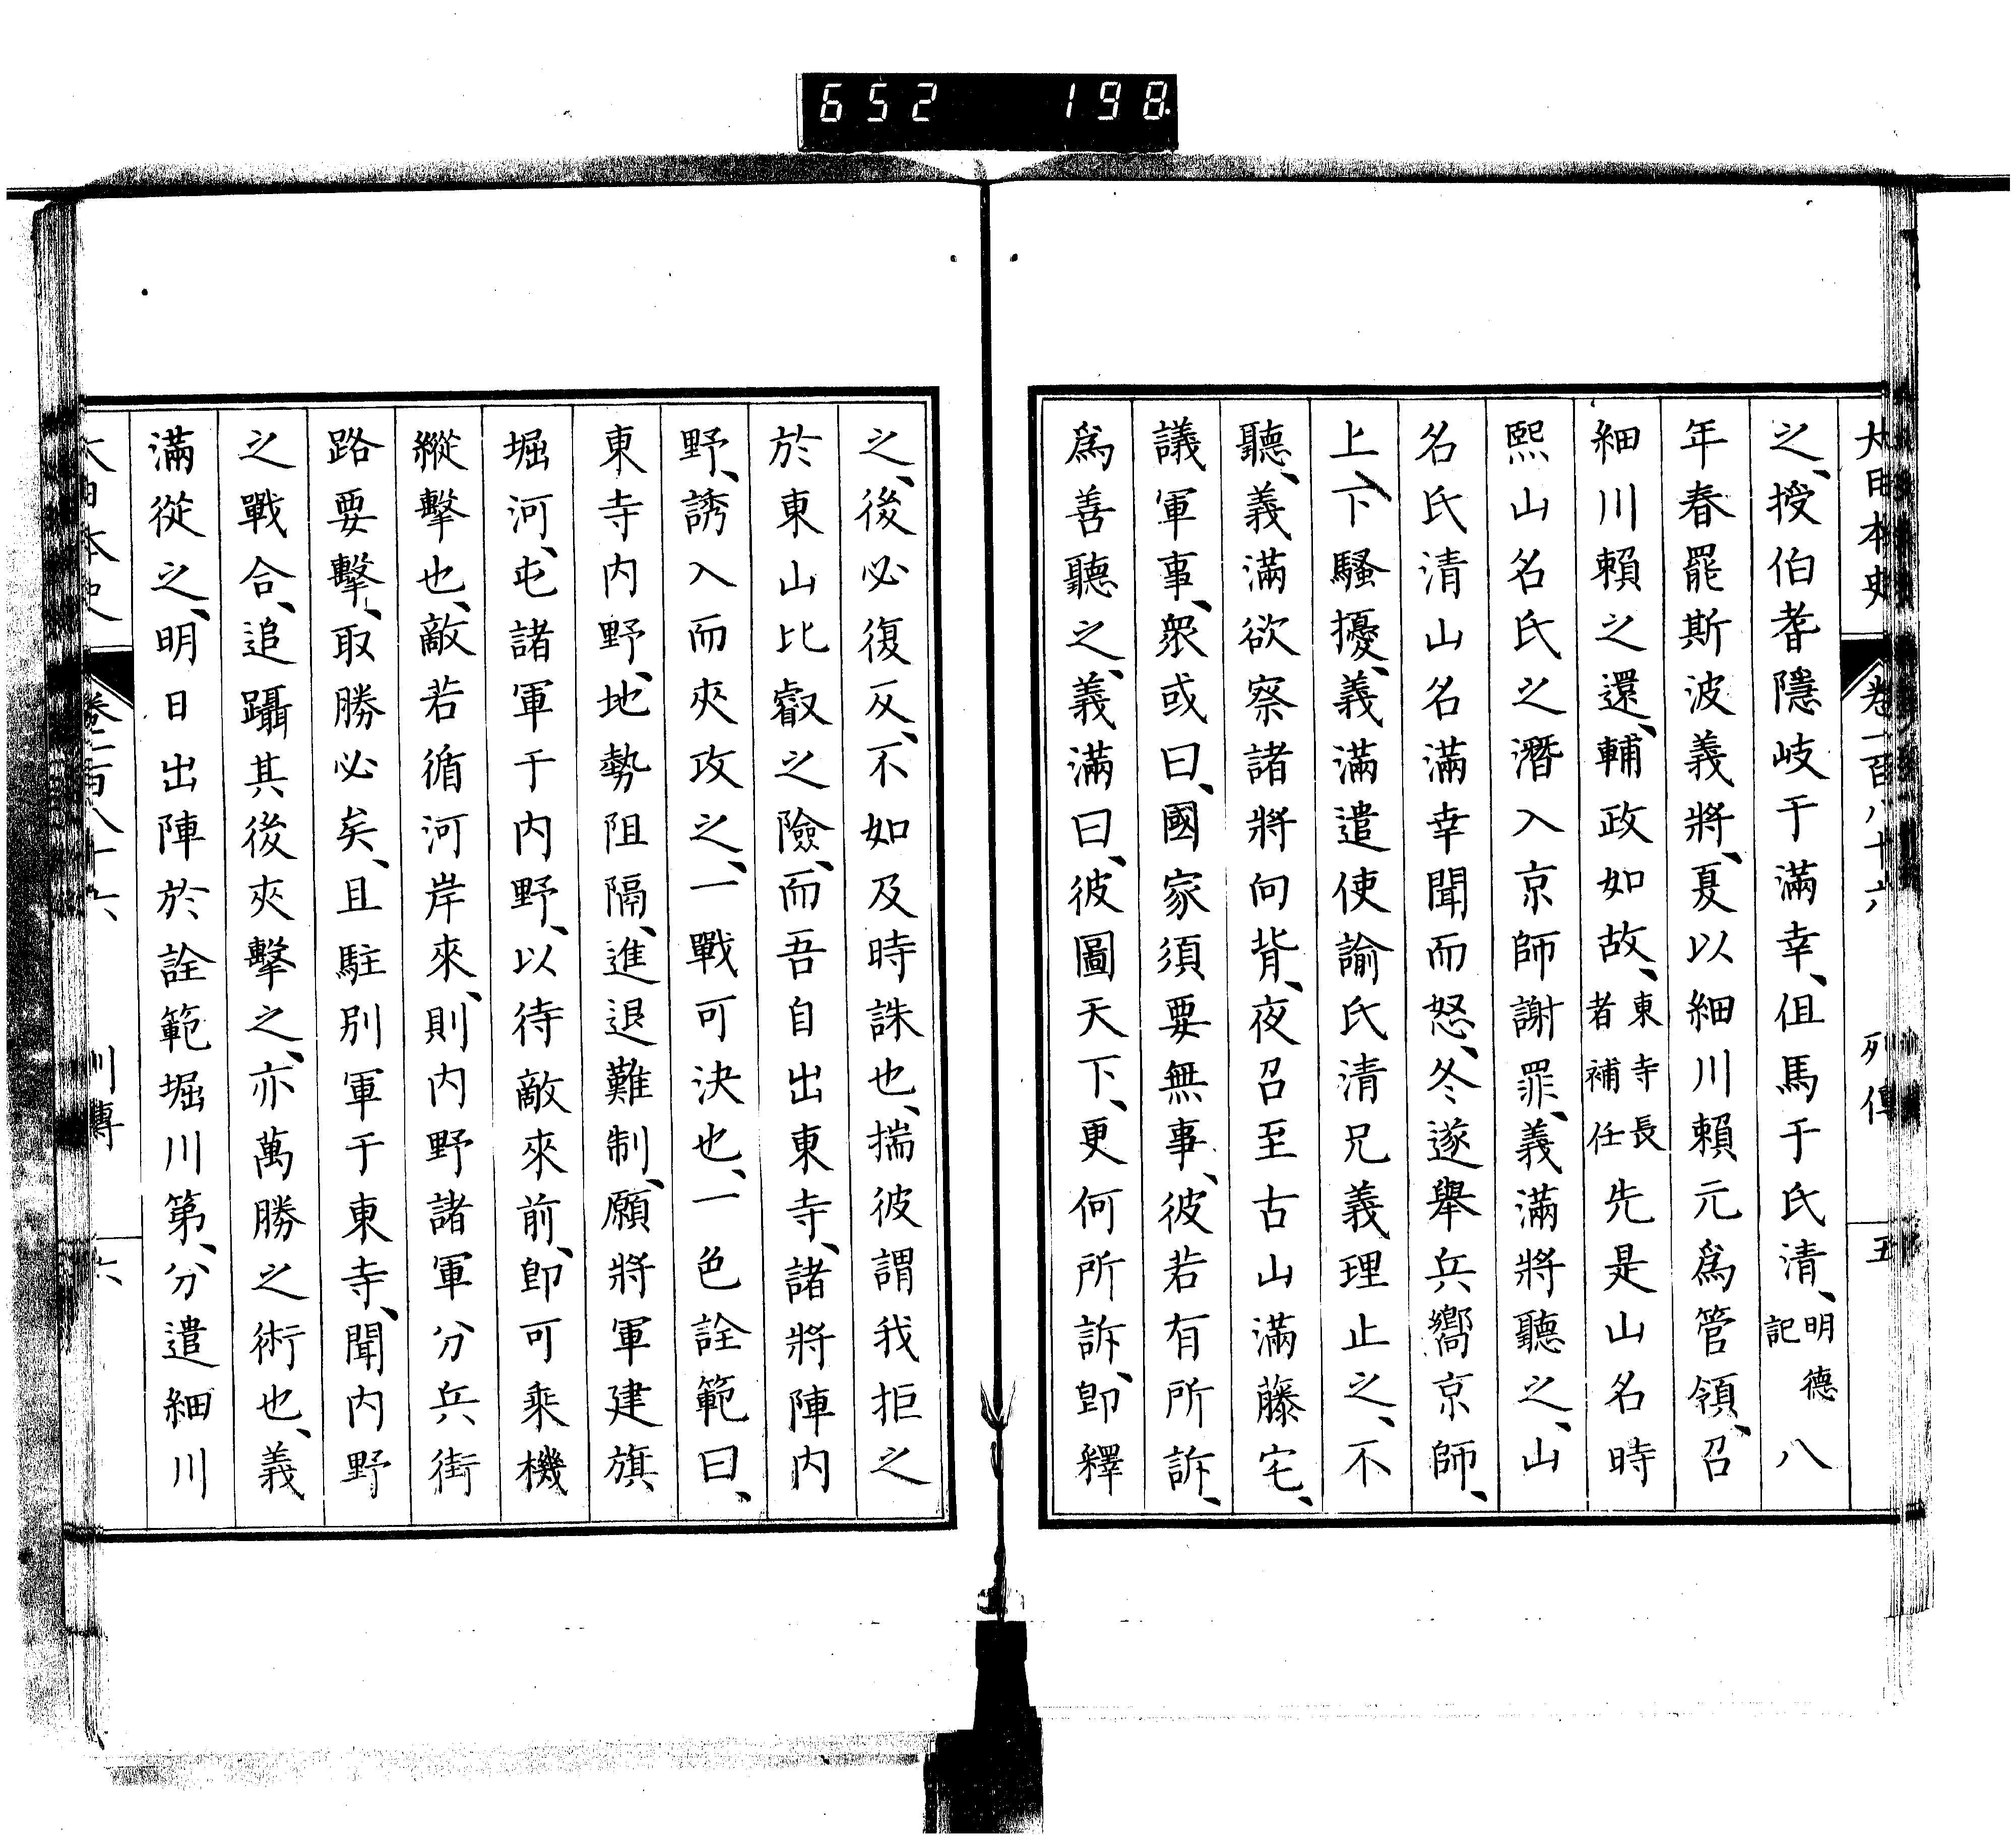 652 198
大日本史 卷一百八十六 列傳 五
之、授伯耆隱岐于滿幸、但馬于氏清、明德記 八
年春罷斯波義將、夏以細川賴元爲管領、召
細川賴之還、輔政如故、東寺長者補任 先是山名時
熙山名氏之潛入京師謝罪、義滿將聽之、山
名氏清山名滿幸聞而怒、冬遂舉兵嚮京師、
上下騷擾、義滿遣使諭氏清兄義理止之、不
聽、義滿欲察諸將向背、夜召至古山滿藤宅、
議軍事、衆或曰、國家須要無事、彼若有所訴、
爲善聽之、義滿曰、彼圖天下、更何所訴、卽釋
之、後必復反、不如及時誅也、揣彼謂我拒之
於東山比叡之險、而吾自出東寺、諸將陣内
野、誘入而夾攻之、一戰可決也、一色詮範曰、
東寺内野、地勢阻隔、進退難制、願將軍建旗
堀河、屯諸軍于内野、以待敵來前、卽可乘機
縱擊也、敵若循河岸來、則内野諸軍分兵街
路要擊、取勝必矣、且駐別軍于東寺、聞内野
之戰合、追躡其後夾擊之、亦萬勝之術也、義
滿從之、明日出陣於詮範堀川第、分遣細川
大日本史 卷一百八十六 列傳 六